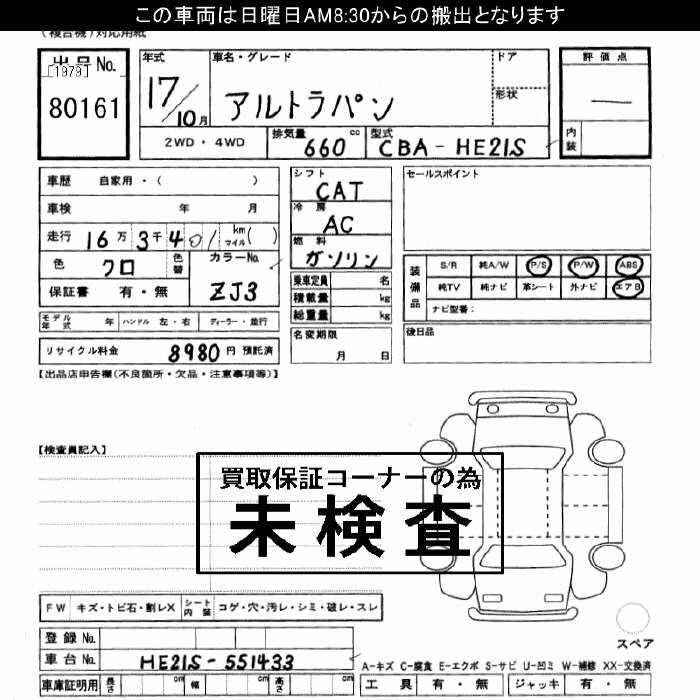 この車両は日曜日AM8:30からの搬出となります
(複合機)対応用紙
出品No.
[1979]
80161
年式
17/10月
車名・グレード
アルトラパン
ドア
形状
評価点
―
内装
2WD・4WD
排気量 660 cc
型式 CBA-HE21S
車歴 自家用・( )
車検 年 月
走行 16万3千401 km マイル( )
色 クロ
色替
カラーNo. ZJ3
保証書 有・無
シフト CAT
冷房 AC
燃料 ガソリン
乗車定員 名
積載量 kg
総重量 kg
セールスポイント
装備品
S/R 純A/W P/S P/W ABS
純TV 純ナビ 革シート 外ナビ エアB
ナビ型番:
モデル年式 年 ハンドル 左・右 ディーラー・並行
名変期限 月 日
後日品
リサイクル料金 8980円 預託済
【出品店申告欄(不良箇所・欠品・注意事項等)】
【検査員記入】
買取保証コーナーの為
未検査
FW キズ・トビ石・割レX シート内装 コゲ・穴・汚レ・シミ・破レ・スレ
登録No.
車台No. HE21S-551433
スペア
A-キズ C-腐食 E-エクボ S-サビ U-凹ミ W-補修 XX-交換済
車庫証明用 長さ cm 幅 cm 高さ cm
工具 有・無 ジャッキ 有・無